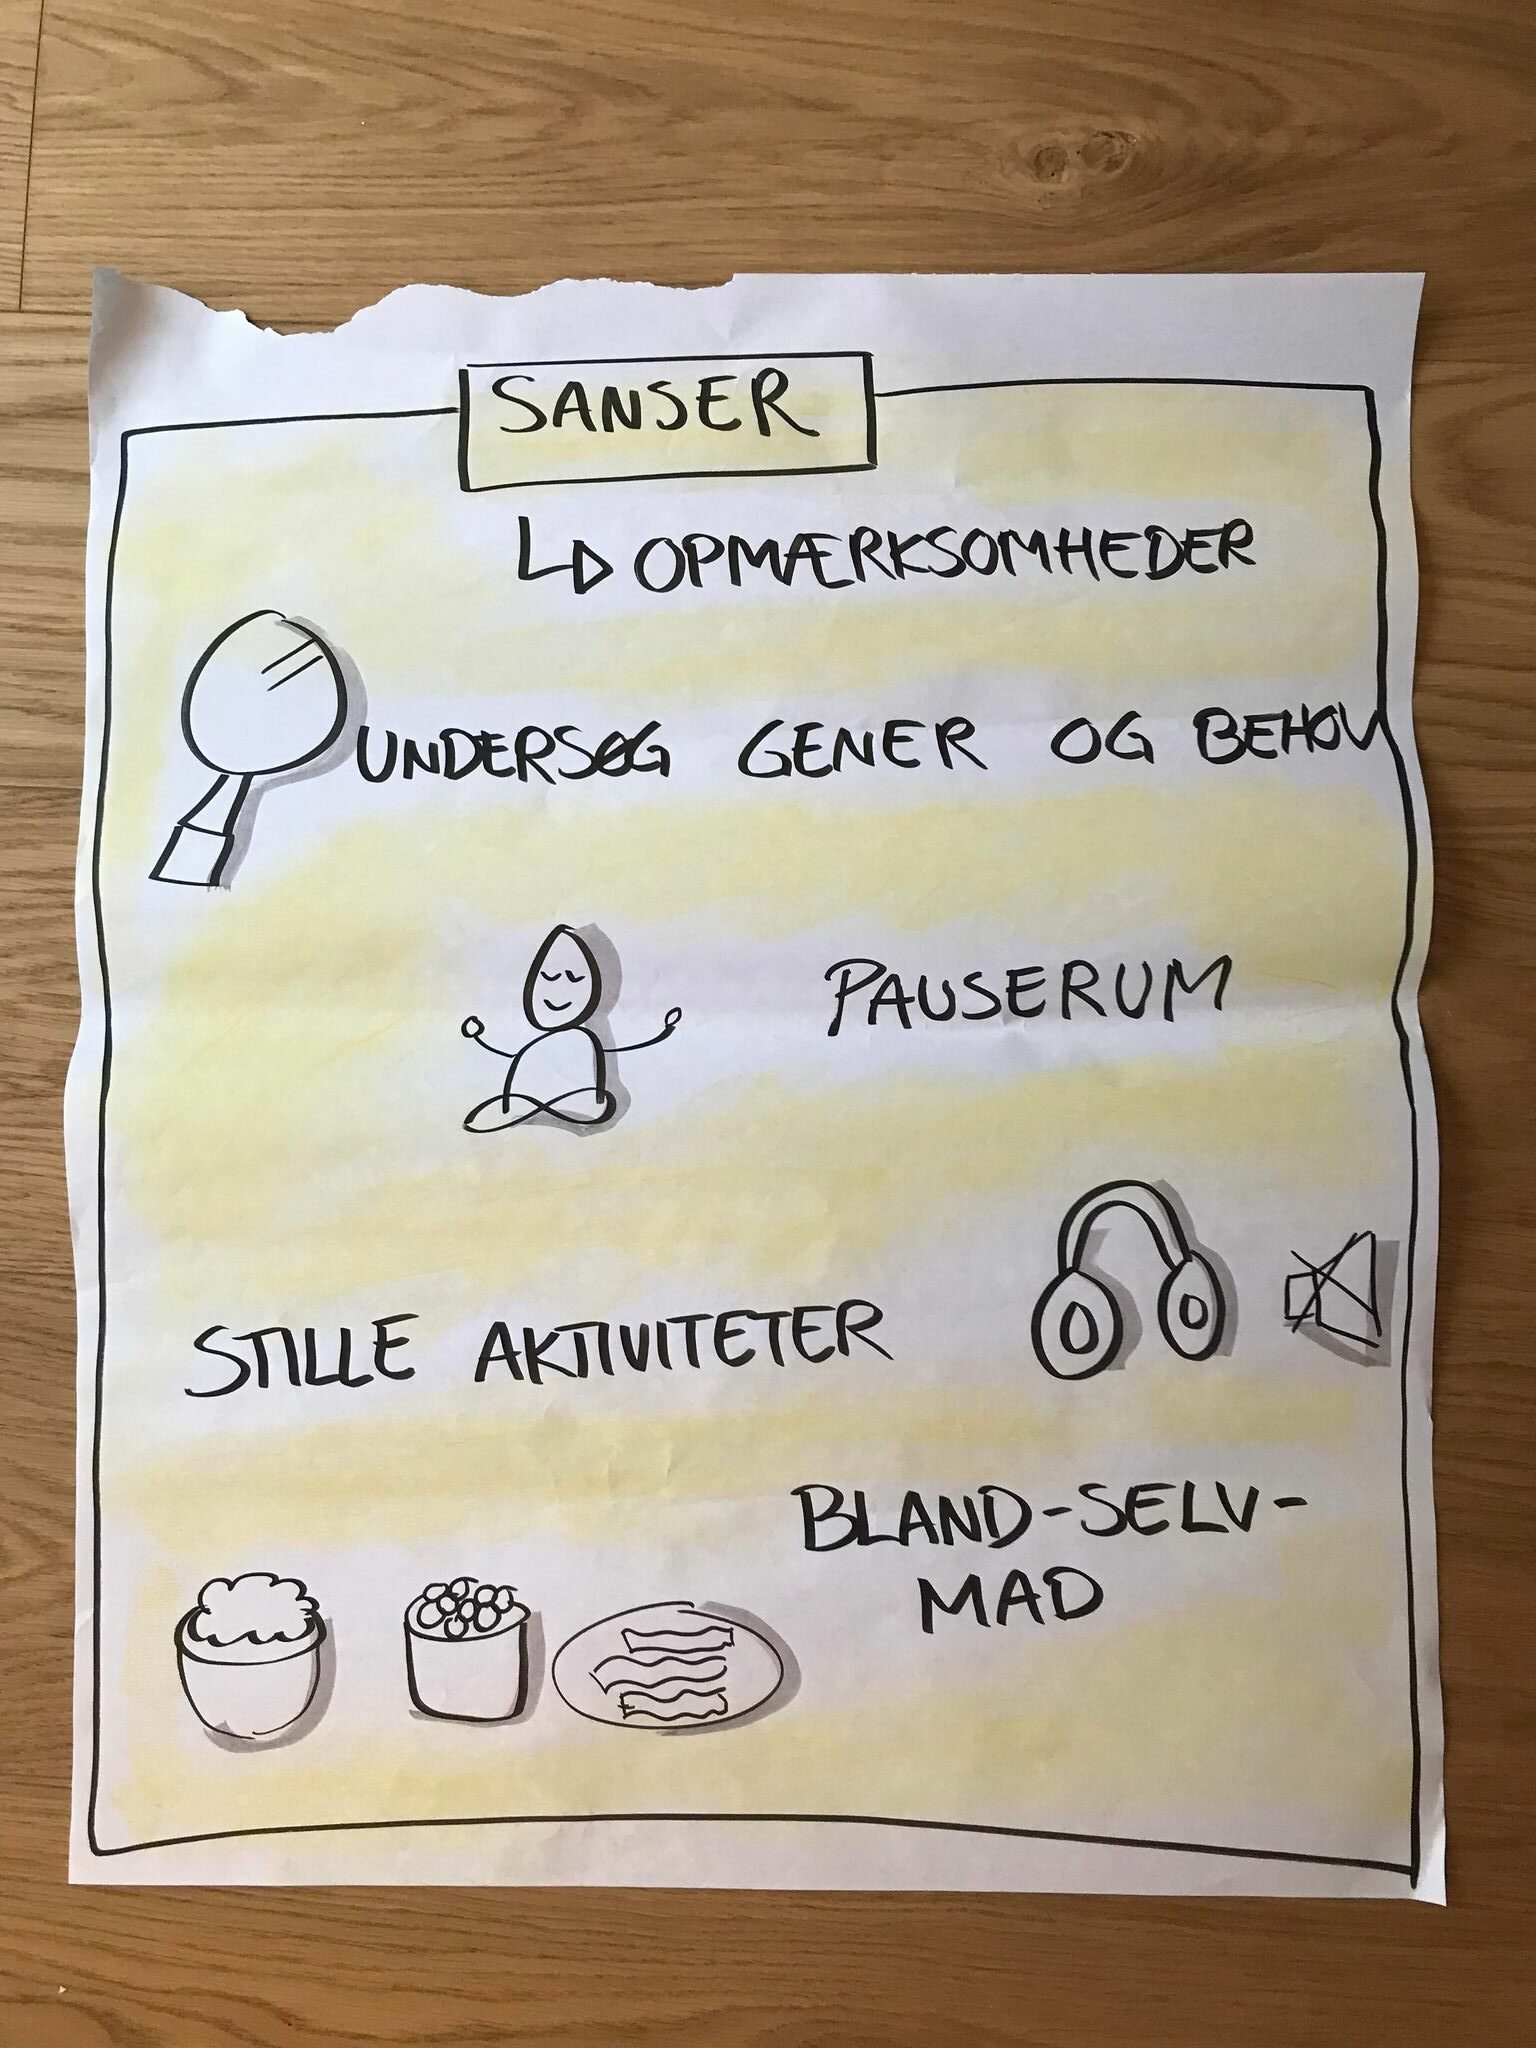 SANSER
OPMÆRKSOMHEDER
UNDERSØG GENER OG BEHOV
PAUSERUM
STILLE AKTIVITETER
BLAND-SELV-
MAD